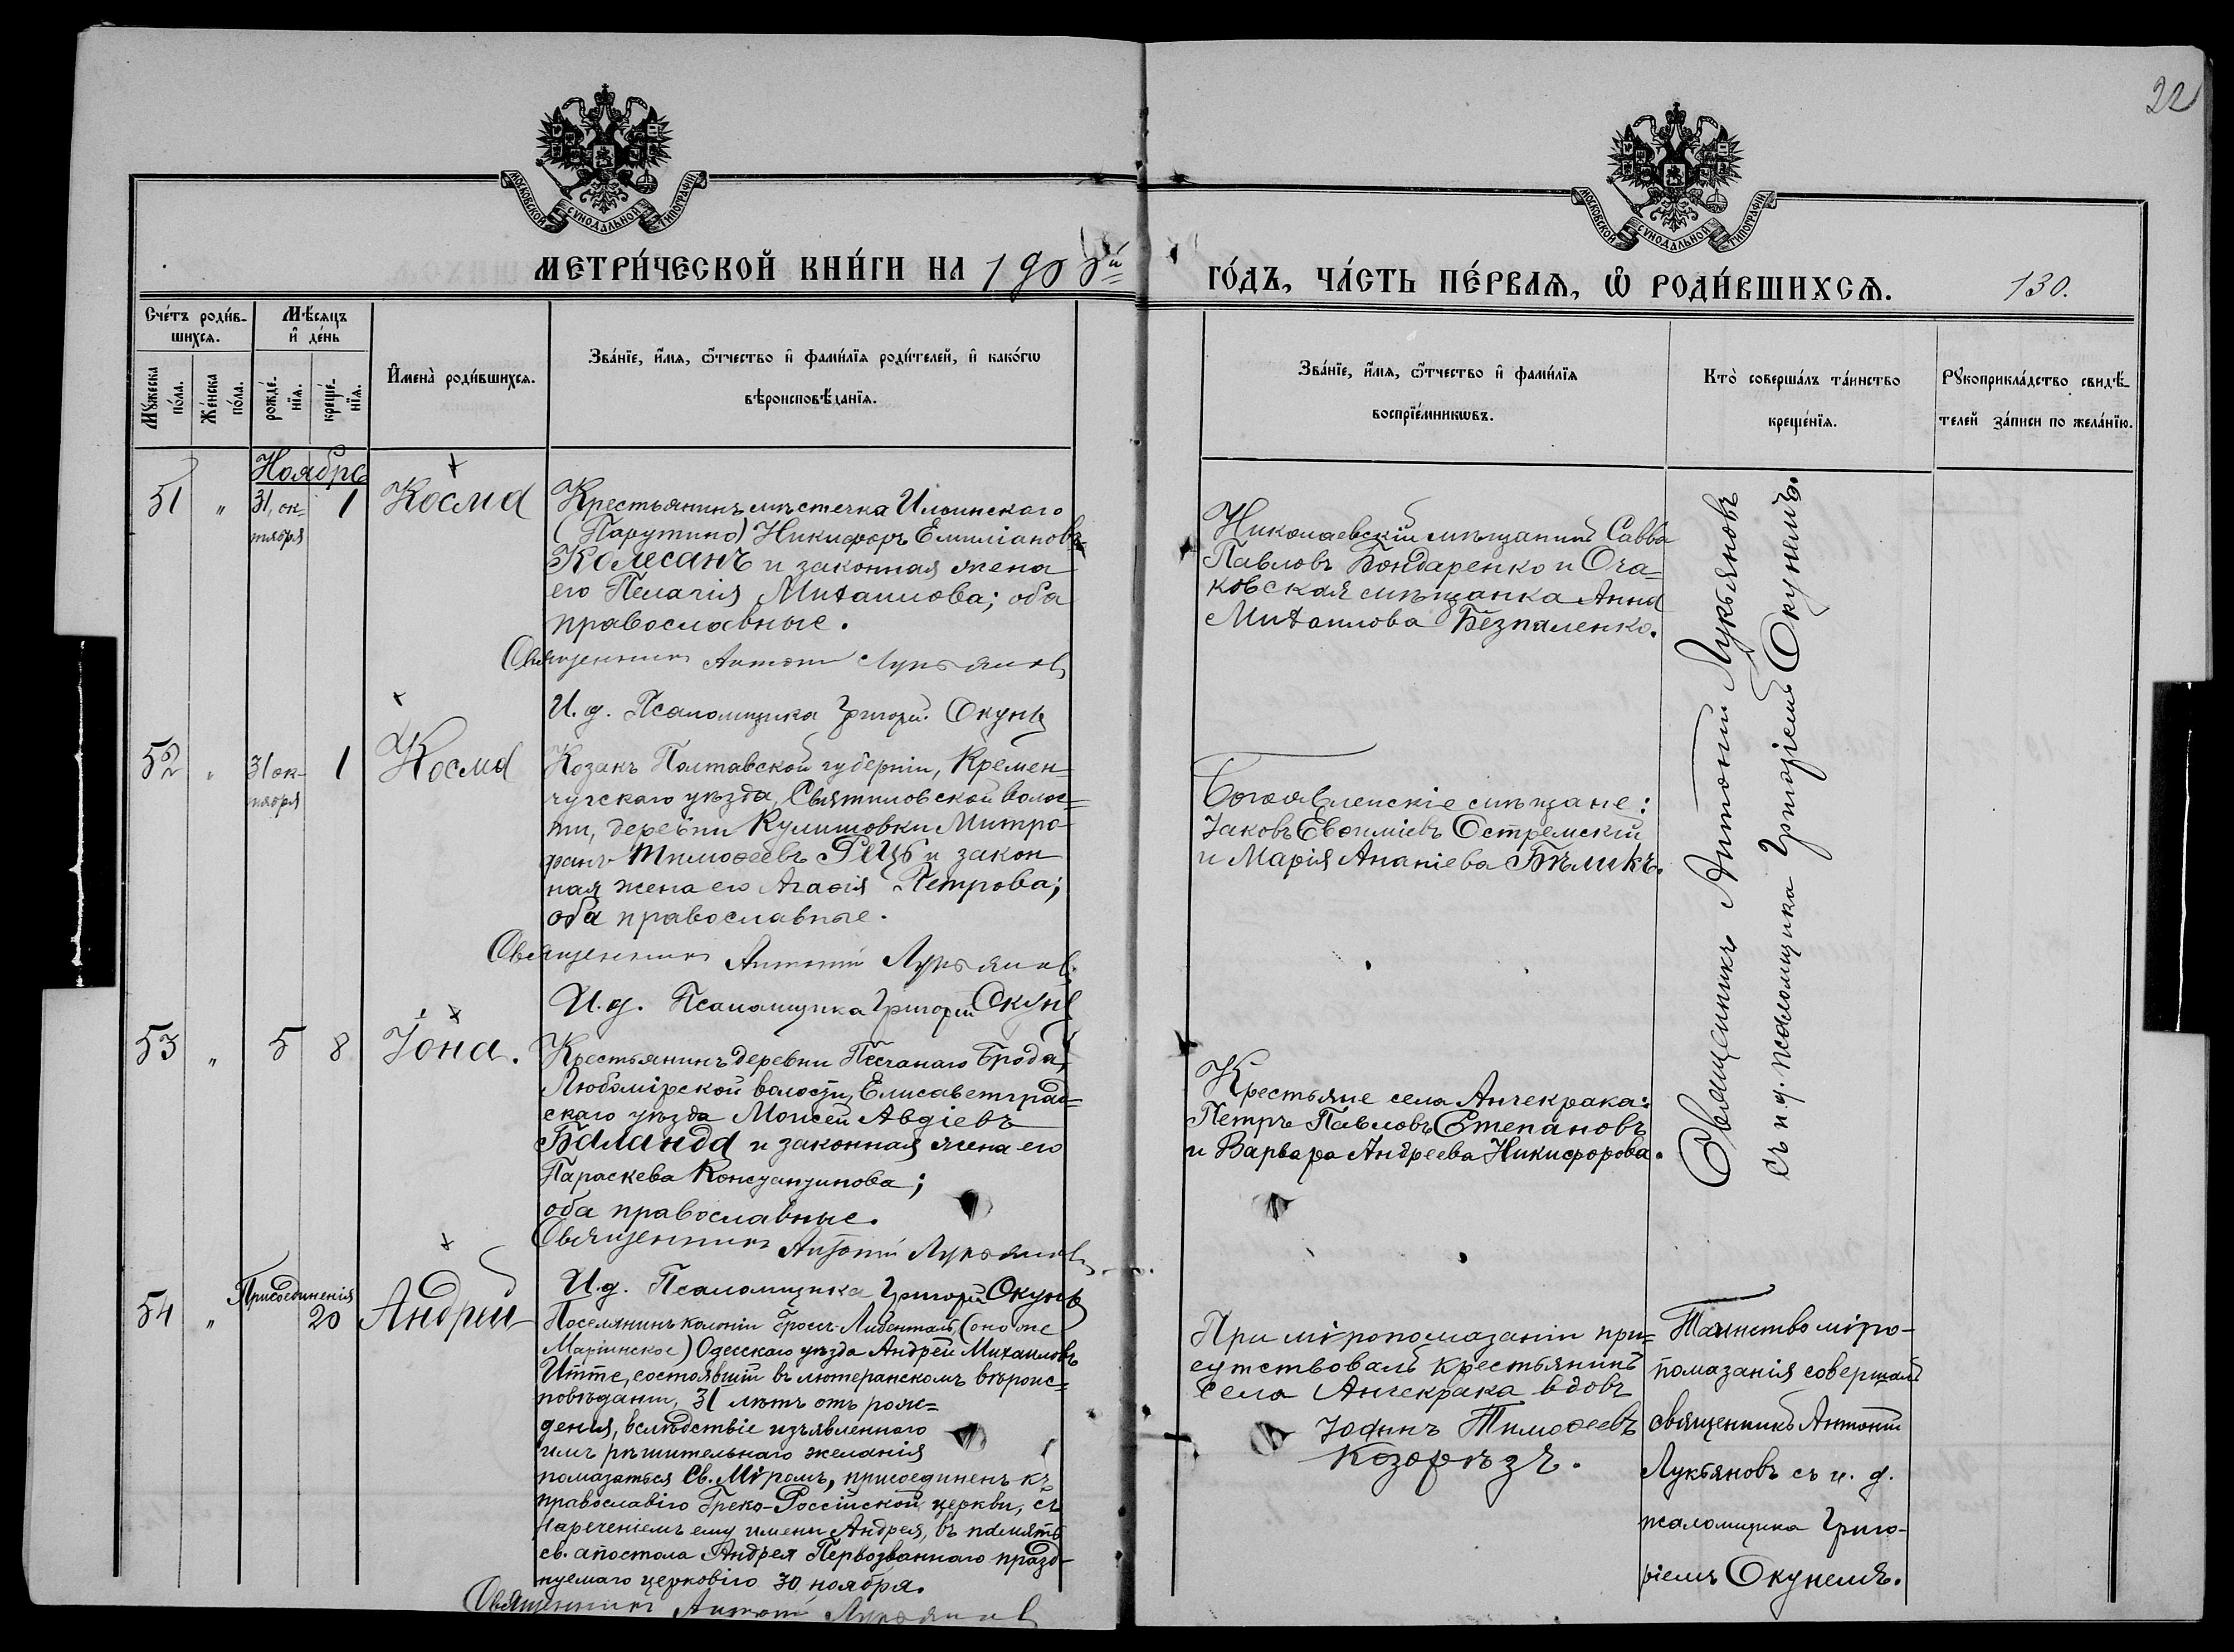 22
МОСКОВСКОЙ СѴНОДАЛЬНОЙ ТИПОГРАФІИ
МОСКОВСКОЙ СѴНОДАЛЬНОЙ ТИПОГРАФІИ
МЕТРИ́ЧЕСКОЙ КНИ́ГИ НА 1905й
ГО́ДЪ, ЧА́СТЬ ПЕ́РВАѦ, Ѡ РОДИ́ВШИХСѦ.
130.
Сче́тъ роди́в-
шихсѧ.
Мѣ́сяцъ
и҆ де́нь
Мꙋ́жеска
по́ла.
Же́нска
по́ла.
рожде́-
нїѧ.
креще́-
нїѧ.
И҆мена̀ роди́вшихсѧ.
Зва́нїе, и҆́мѧ, ѻ҆́тчество и҆ фами́лїѧ роди́телей, и҆ како́гѡ
вѣроисповѣ́данїѧ.
Зва́нїе, и҆́мѧ, ѻ҆́тчество и҆ фами́лїѧ
воспрїе́мникѡвъ.
Кто̀ соверша́лъ та́инство
креще́нїѧ.
Рꙋкоприкла́дство свидѣ́-
телей за́писи по жела́нїю.
Ноябрь
51 " 31, ок-
тября
1 Косма
Крестьянинъ мѣстечка Ильинскаго
(Парутино) Никифоръ Емиліановъ
Колесанъ и законная жена
его Пелагія Михаилова; оба
православные.
Священникъ Антоній Лукьяновъ
И. д. Псаломщика Григорій Окунь
Николаевскій мѣщанинъ Савва
Павловъ Бондаренко и Оча=
ковская мѣщанка Анна
Михаилова Безпаленко.
Священникъ Антоній Лукьяновъ
съ и. д. псаломщика Григоріемъ Окунемъ.
52 " 31 ок-
тября
1 Косма
Козакъ Полтавской губерніи, Кремен=
чугскаго уѣзда, Святиловской волос=
ти, деревни Кулишовки Митро-
фанъ Тимоѳеевъ Рець и закон
ная жена его Агаѳія Петрова;
оба православные.
Священникъ Антоній Лукьяновъ.
И. д. Псаломщика Григорій Окунь
Богоявленскіе мѣщане:
Іаковъ Евѳиміевъ Остремскій
и Марія Ананіева Бѣликъ.
53 " 5 8 Іона.
Крестьянинъ деревни Песчанаго Брода,
Любомірской волости, Елисаветград=
скаго уѣзда Моисей Авдіевъ
Баланда и законная жена его
Параскева Константинова;
оба православные.
Священникъ Антоній Лукьяновъ
И. д. Псаломщика Григорій Окунь
Крестьяне села Анчекрака:
Петръ Павловъ Степановъ
и Варвара Андреева Никифорова.
Присоединенія
54 " 20 Андрей
Поселянинъ колоніи Гросъ-Либенталь, (оно же
Маріинское) Одесскаго уѣзда Андрей Михаиловъ
Итте, состоявшій въ лютеранскомъ вѣроис=
повѣданіи, 31 лѣтъ отъ рож=
денія, вслѣдствіе изъявленнаго
имъ рѣшительнаго желанія
помазаться Св. Мѵромъ, присоединенъ къ
православію Греко-Россійской церкви, съ
нареченіемъ ему имени Андрея, въ память
св. апостола Андрея Первозваннаго празд-
нуемаго церковію 30 ноября.
Священникъ Антоній Лукьяновъ
При мѵропомазаніи при=
сутствовалъ крестьянинъ
села Анчекрака вдовъ
Іоаннъ Тимоѳеевъ
Козорѣзъ.
Таинство мѵро-
помазанія совершалъ
священникъ Антоній
Лукьяновъ съ и. д.
псаломщика Григо-
ріемъ Окунемъ.